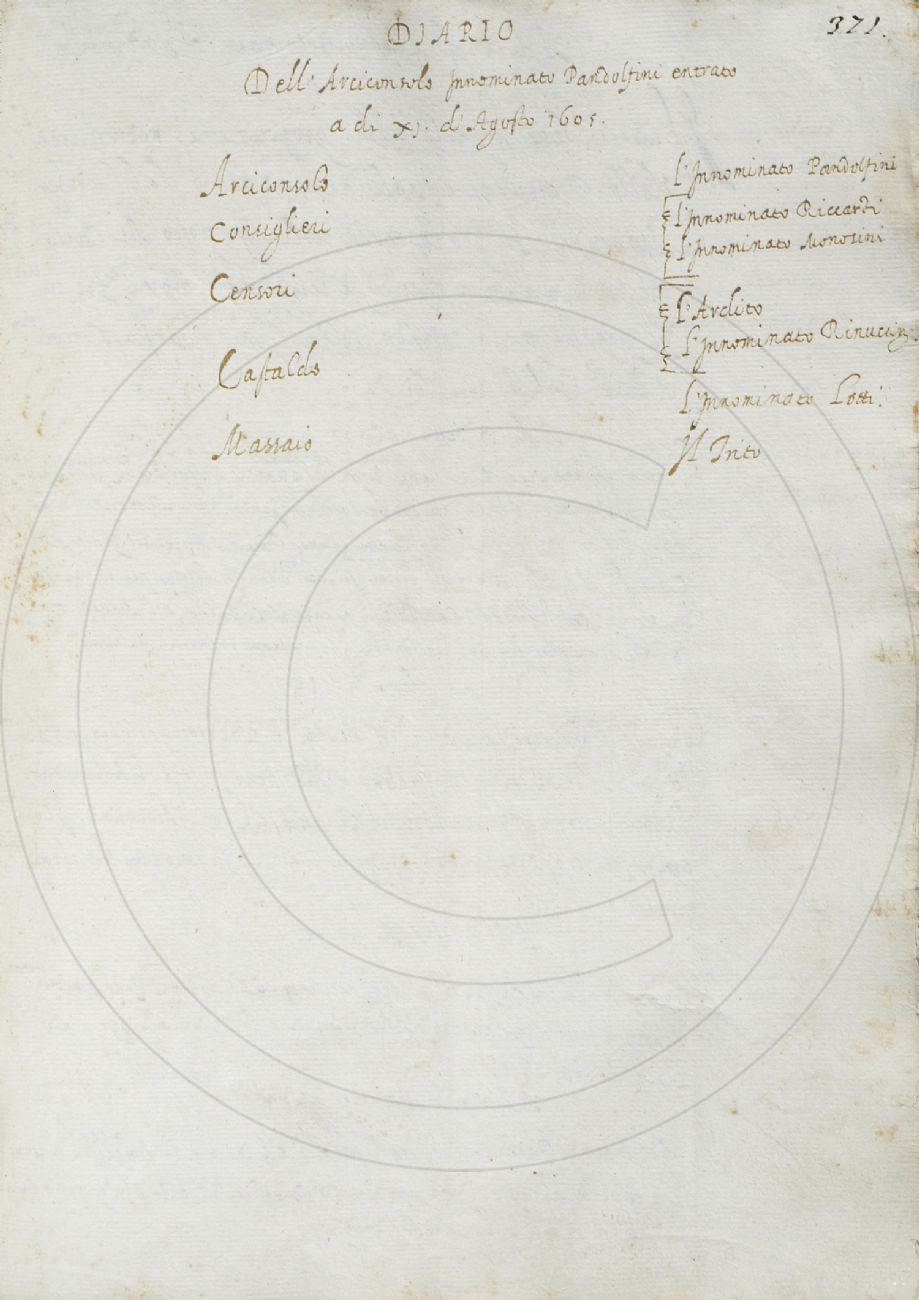 371.
DIARIO
Dell' Arciconsolo Innominato Pandolfini entrato
a di XI. d'Agosto 1605.
Arciconsolo L'Innominato Pandolfini
Consiglieri L'Innominato Riccardi
L'Innominato Monosini
Censori L'Ardito
L'Innominato Rinuccin
Castaldo L'Innominato Lotti.
Massaio Il Trito